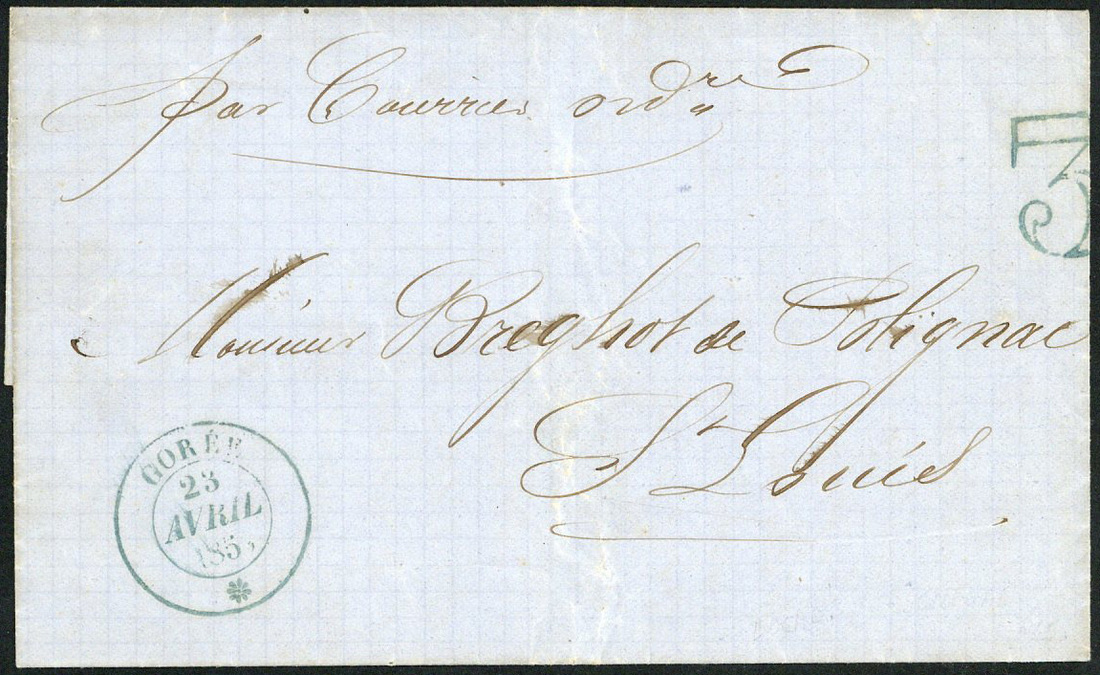 par Courrier ord^re
3
Monsieur Breghot de Polignac
St Louis
GORÉE
23
AVRIL
185